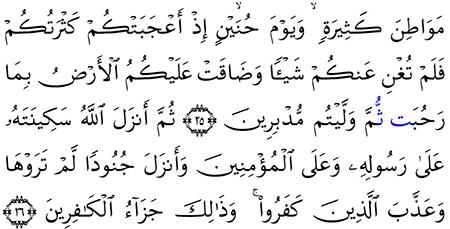 مَوَاطِنَ كَثِيرَةٍ ۙ وَيَوْمَ حُنَيْنٍ ۙ إِذْ أَعْجَبَتْكُمْ كَثْرَتُكُمْ
فَلَمْ تُغْنِ عَنكُمْ شَيْـًٔا وَضَاقَتْ عَلَيْكُمُ ٱلْأَرْضُ بِمَا
رَحُبَت ثُّمَّ وَلَّيْتُم مُّدْبِرِينَ ۝٢٥ ثُمَّ أَنزَلَ ٱللَّهُ سَكِينَتَهُۥ
عَلَىٰ رَسُولِهِۦ وَعَلَى ٱلْمُؤْمِنِينَ وَأَنزَلَ جُنُودًا لَّمْ تَرَوْهَا
وَعَذَّبَ ٱلَّذِينَ كَفَرُوا۟ ۚ وَذَٰلِكَ جَزَآءُ ٱلْكَـٰفِرِينَ ۝٢٦